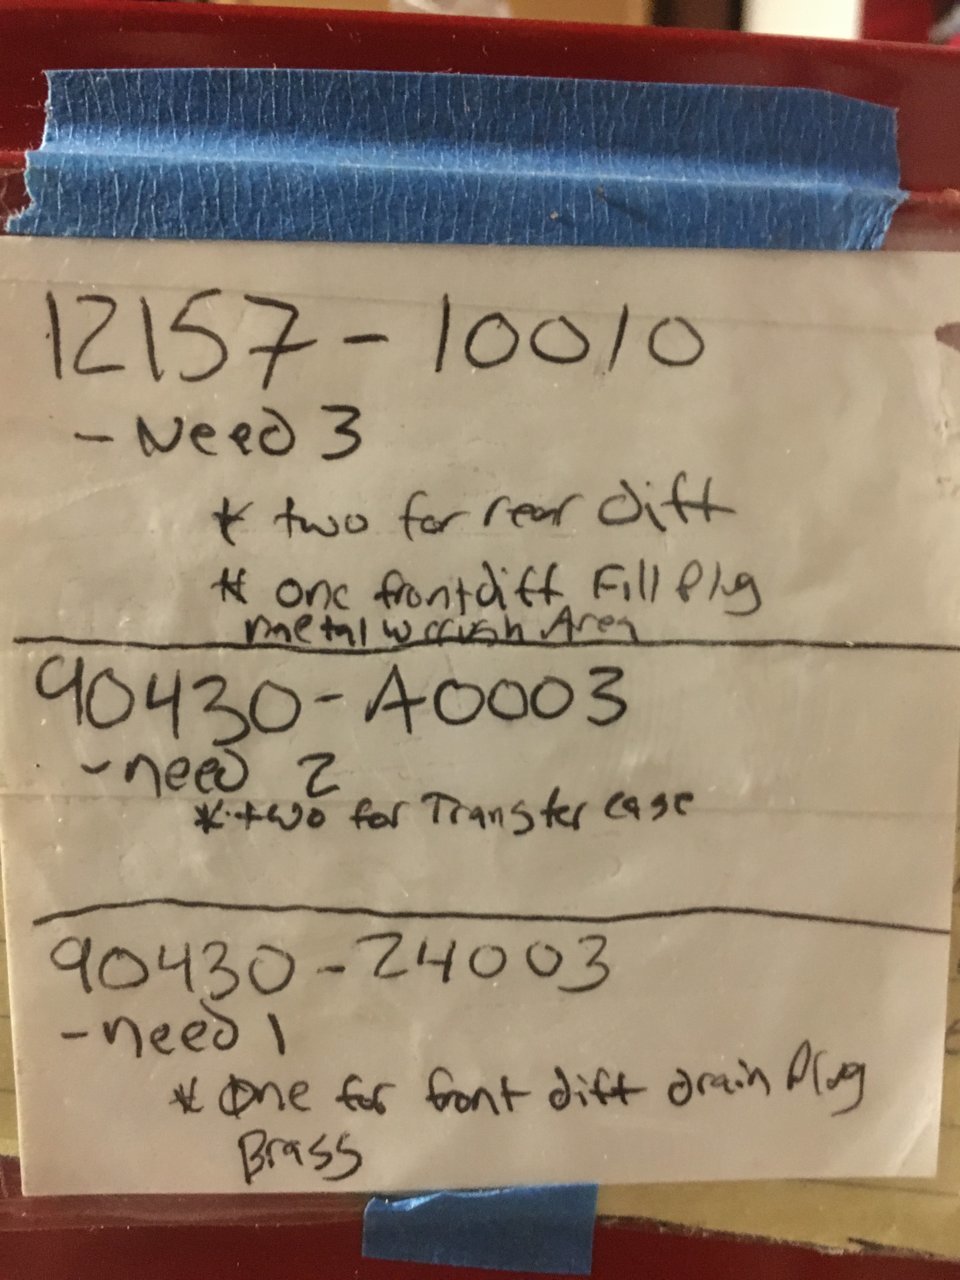 12157-10010
- Need 3
* two for rear diff
* one front diff Fill Plug
metal Area
90430-A0003
- need 2
* two for Transfer case
90430-24003
- need 1
* One for front diff drain Plug
Brass